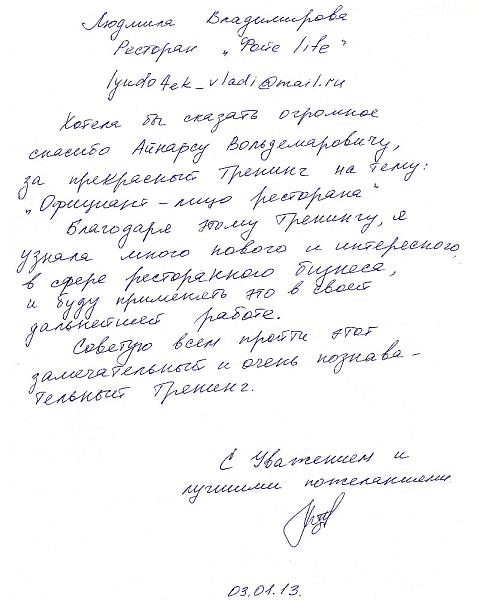 Людмила Владимирова
Ресторан „Фойе life"
lyudo4ek_vladi@mail.ru
Хотела бы сказать огромное
спасибо Айнарсу Вольдемаровичу,
за прекрасный тренинг на тему:
„Официант – лицо ресторана"
Благодаря этому тренингу, я
узнала много нового и интересного
в сфере ресторанного бизнеса,
и буду применять это в своей
дальнейшей работе.
Советую всем пройти этот
замечательный и очень познава-
тельный тренинг.
С Уважением и
лучшими пожеланиями
03.01.13.